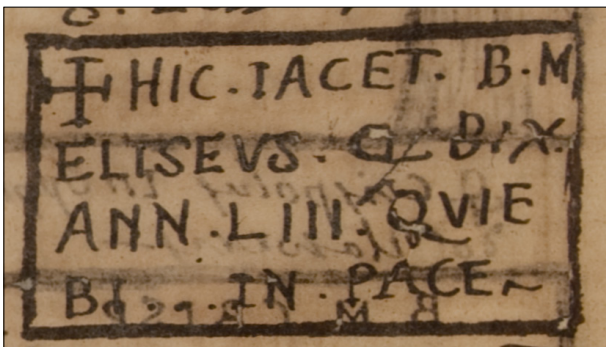 ✝ HIC. IACET. B. M
ELISEVS. G BIX.
ANN. LIII. QVIE
BI . IN. PACE